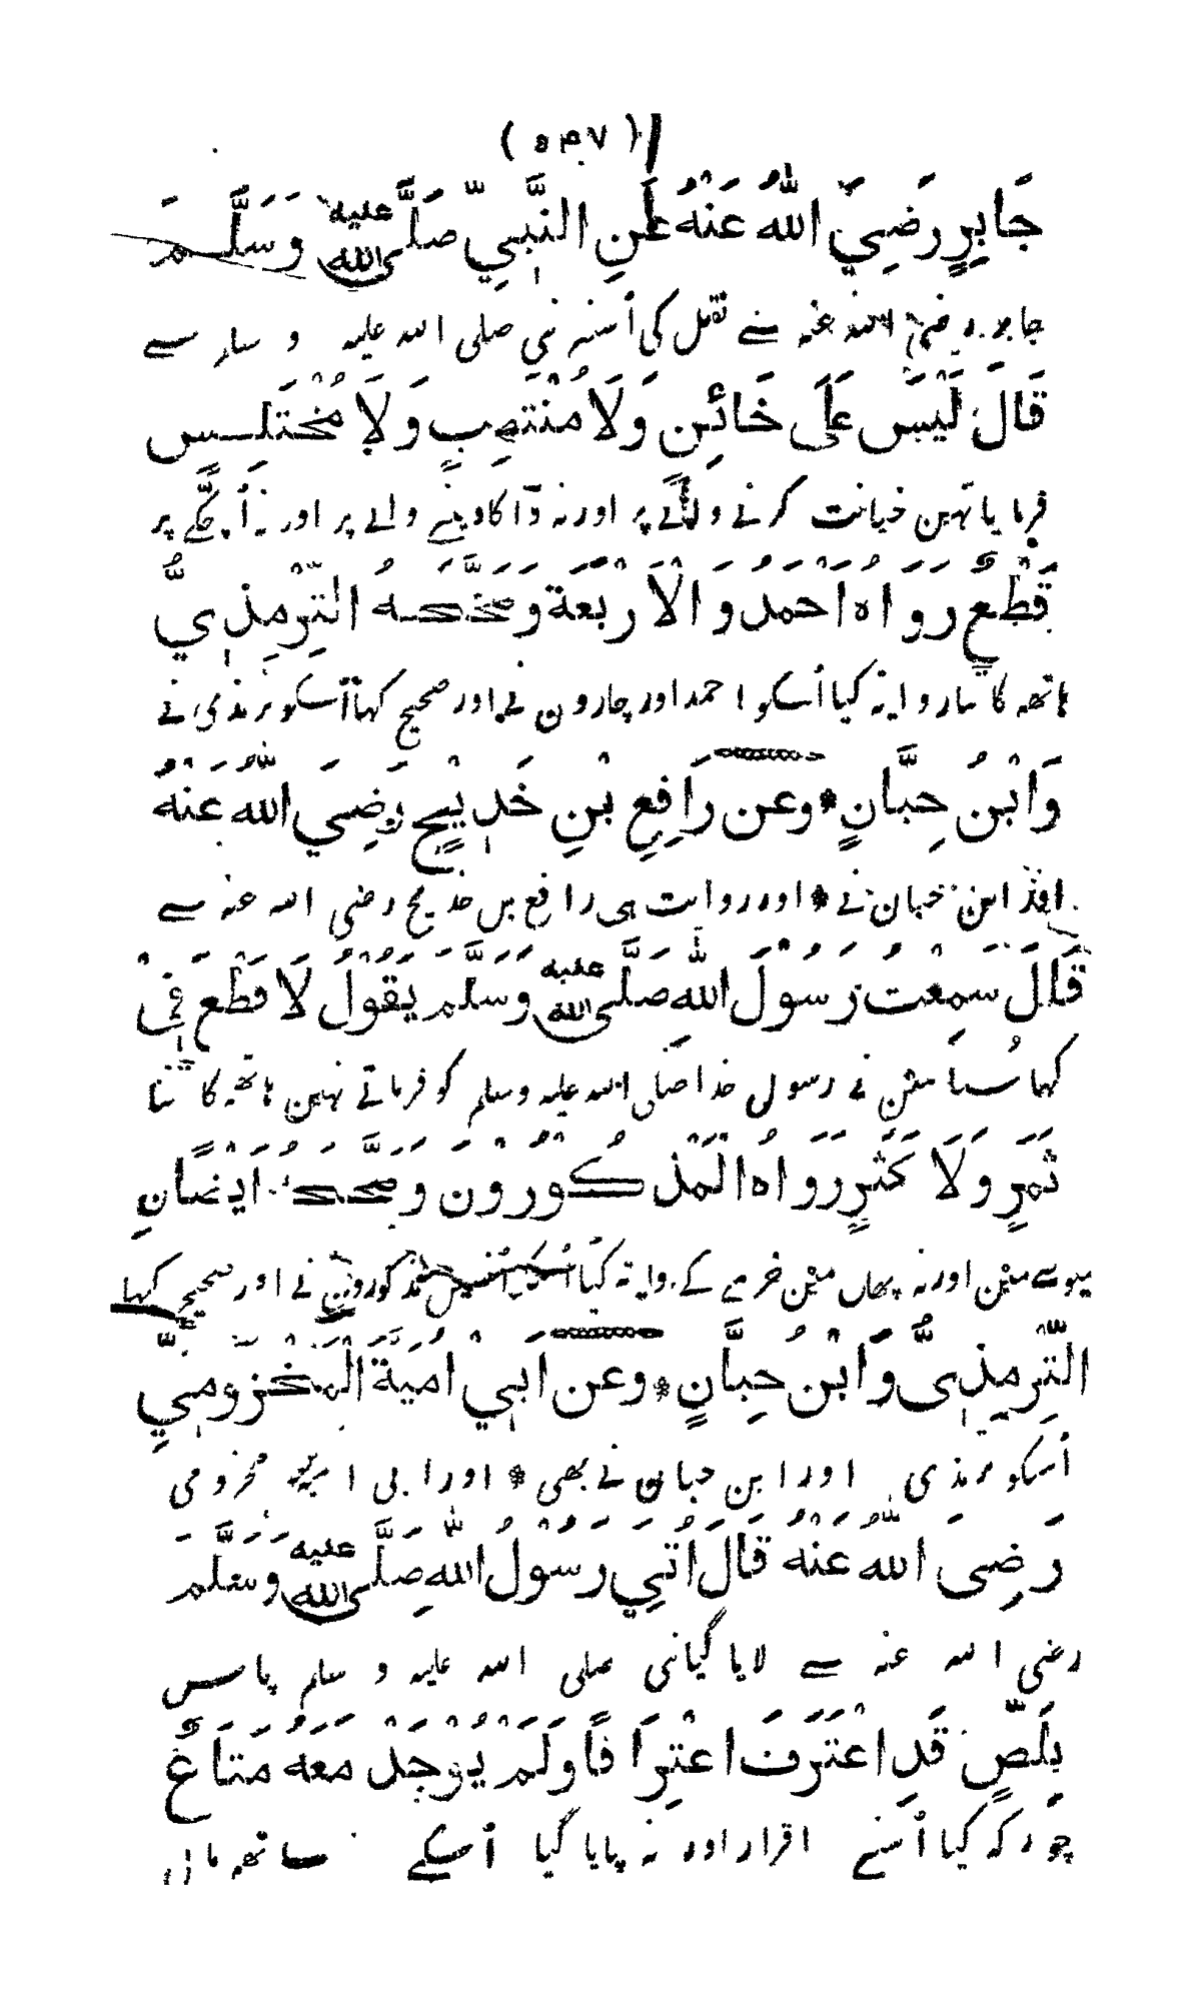 ( ۵۴۷ )
جَابِرٍ رَضِيَ اللهُ عَنْهُ عَنِ النَّبِيِّ صَلَّى الله عليه وَسَلَّمَ
جابر رضی اللہ عنہ سے نقل کی اُسنے نبی صلی اللہ علیہ و سلم سے
قَالَ لَيْسَ عَلَى خَائِنٍ وَلَا مُنْتَهِبٍ وَلَا مُخْتَلِسٍ
فرمایا نہین خیانت کرنے والے پر اور نہ ڈاکا دینے والے پر اور نہ اُچکے پر
قَطْعٌ رَوَاهُ اَحْمَدُ وَالْاَرْبَعَةُ وَصَحَّحَهُ التِّرْمِذِيُّ
ہاتھ کاٹنا روایۃ کیا اُسکو احمد اور چارون نے اور صحیح کہا اُسکو ترمذی نے
وَابْنُ حِبَّانٍ * وعن رَافِعِ بْنِ خَدِيْجٍ رَضِيَ اللهُ عَنْهُ
اور ابن حبان نے * اور روایت ہی رافع بن خدیج رضی اللہ عنہ سے
قَالَ سَمِعْتُ رَسُوْلَ اللهِ صَلَّى الله عليه وَسَلَّمَ يَقُوْلُ لَا قَطْعَ فِيْ
کہا سُنا مین نے رسول خدا صلی اللہ علیہ وسلم کو فرماتے نہین ہاتھ کاٹنا
ثَمَرٍ وَلَا كَثَرٍ رَوَاهُ الْمَذْكُوْرُوْنَ وَصَحَّحَهُ اَيْضًا
میوے مین اور نہ پھان مین خرمے کے روایۃ کیا اُسکو اُنہین مذکورون نے اور صحیح کہا
التِّرْمِذِىُّ وَابْنُ حِبَّانٍ * وعن اَبِيْ اُمَيَّةَ الْمَخْزُوْمِيِّ
اُسکو ترمذی اور ابن حبان نے بھی * اور ابی امیہ مخزومی
رَضِىَ اللهُ عَنْهُ قَالَ اُتِيَ رَسُوْلُ اللهِ صَلَّى الله عليه وَسَلَّمَ
رضی اللہ عنہ سے لایا گیا نبی صلی اللہ علیہ و سلم پاس
بِلِصٍّ قَدِ اعْتَرَفَ اعْتِرَافًا وَلَمْ يُوْجَدْ مَعَهُ مَتَاعٌ
چور کہ کیا اُسنے اقرار اور نہ پایا گیا اُسکے ساتھ مال